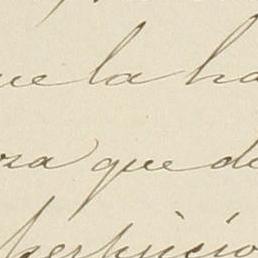 ue la ha
osa que de
perjuicio